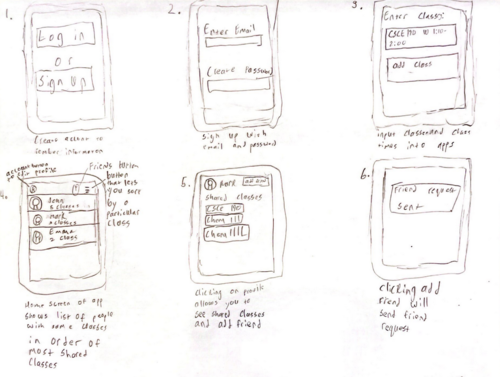 1.
Log in
or
Sign up
Create author to
further information
2.
Enter Email
Create Password
sign up with
email and password
3.
Enter Classes
CSCE 190
2:00
add class
input classes and class
times into apps
4.
account button
to edit profile
Friends button
button
that lets
you sort
by a
particular
class
John
3 classes
Mark
Emma
2 class
Home screen of app
shows list of people
with same classes
in order of
most shared
classes
5.
Mark
add friend
shared classes
CSCE 190
Chem 111
Chem 111L
clicking on profile
allows you to
see shared classes
and add friend
6.
Friend request
sent
clicking add
friend will
send friend
request